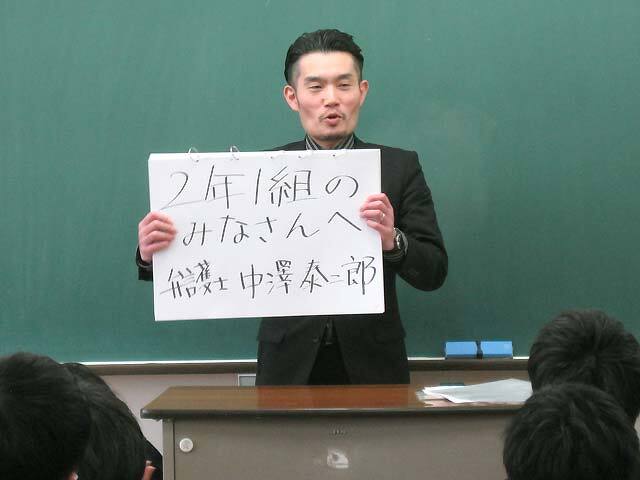 2年1組の
みなさんへ
弁護士 中澤泰二郎